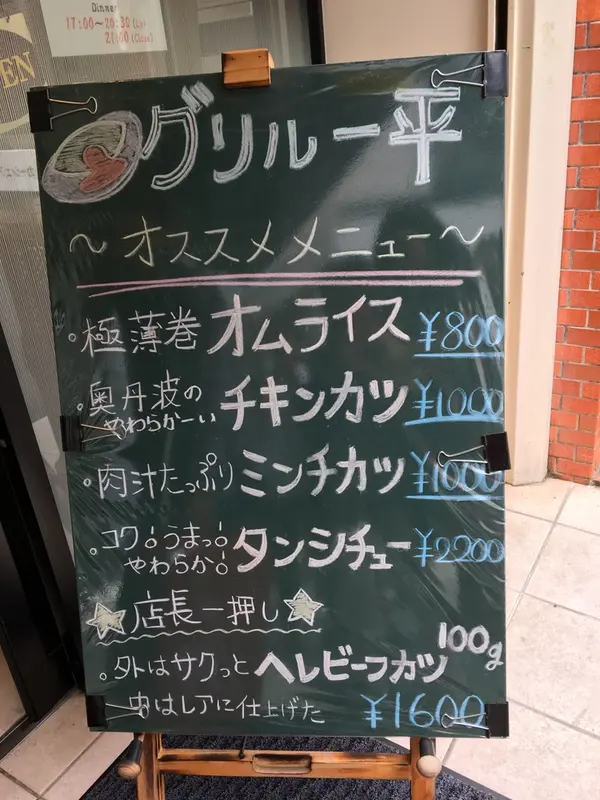 Dinner
17:00～20:30(Lo)
21:00(Close)
EN
グリル一平
～オススメメニュー～
。極薄巻オムライス ¥800
。奥丹波のやわらかーいチキンカツ ¥1000
。肉汁たっぷりミンチカツ ¥1000
。コク!うまっ!やわらか!タンシチュー ¥2200
☆店長一押し☆
。外はサクっと中はレアに仕上げたヘレビーフカツ 100g
¥1600